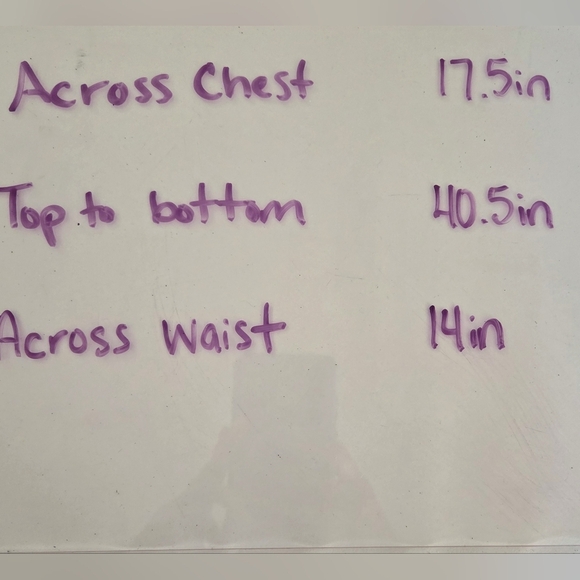 Across Chest 17.5in
Top to bottom 40.5in
Across Waist 14in